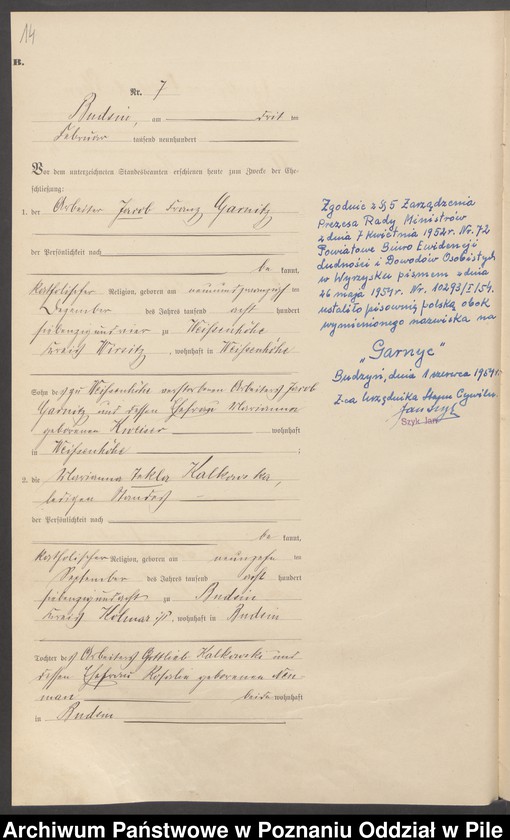 14
B.
Nr. 7
Budsin, am drit en
Februar tausend neunhundert
Vor dem unterzeichneten Standesbeamten erschienen heute zum Zwecke der Ehe-
schließung:
1. der Arbeiter Jacob Franz Garnitz
der Persönlichkeit nach
be kannt,
katholischer Religion, geboren am neunundzwanzigsten
Dezember des Jahres tausend acht hundert
siebenzig und vier zu Weissenhöhe
Kreis Wirsitz, wohnhaft in Weissenhöhe
Sohn des zu Weissenhöhe verstorbenen Arbeiters Jacob
Garnitz und dessen Ehefrau Marianna
geborenen wohnhaft
in Weissenhöhe ;
2. die Marianna Tekla Kalkowska,
ledigen Standes
der Persönlichkeit nach
be kannt,
katholischer Religion, geboren am neunzehn ten
September des Jahres tausend acht hundert
siebenzig und acht zu Budsin
Kreis Kolmar i/P., wohnhaft in Budsin
Tochter des Arbeiters Gottlieb Kalkowski und
dessen Ehefrau Rosalie geborenen Neu-
mann beide wohnhaft
in Budsin
Zgodnie z § 5 Zarządzenia
Prezesa Rady Ministrów
z dnia 7 kwietnia 1952r. Nr. 72
Powiatowe Biuro Ewidencji
Ludności i Dowodów Osobistych
w Wyrzysku pismem z dnia
26 maja 1954r. Nr. 10293/I/54.
ustaliło pisownię polską obok
wymienionego nazwiska na
"Garnyc"
Budzyń, dnia 1 czerwca 1954r.
Z-ca Urzędnika Stanu Cywiln.
Jan Szyk
Szyk Jan
Archiwum Państwowe w Poznaniu Oddział w Pile